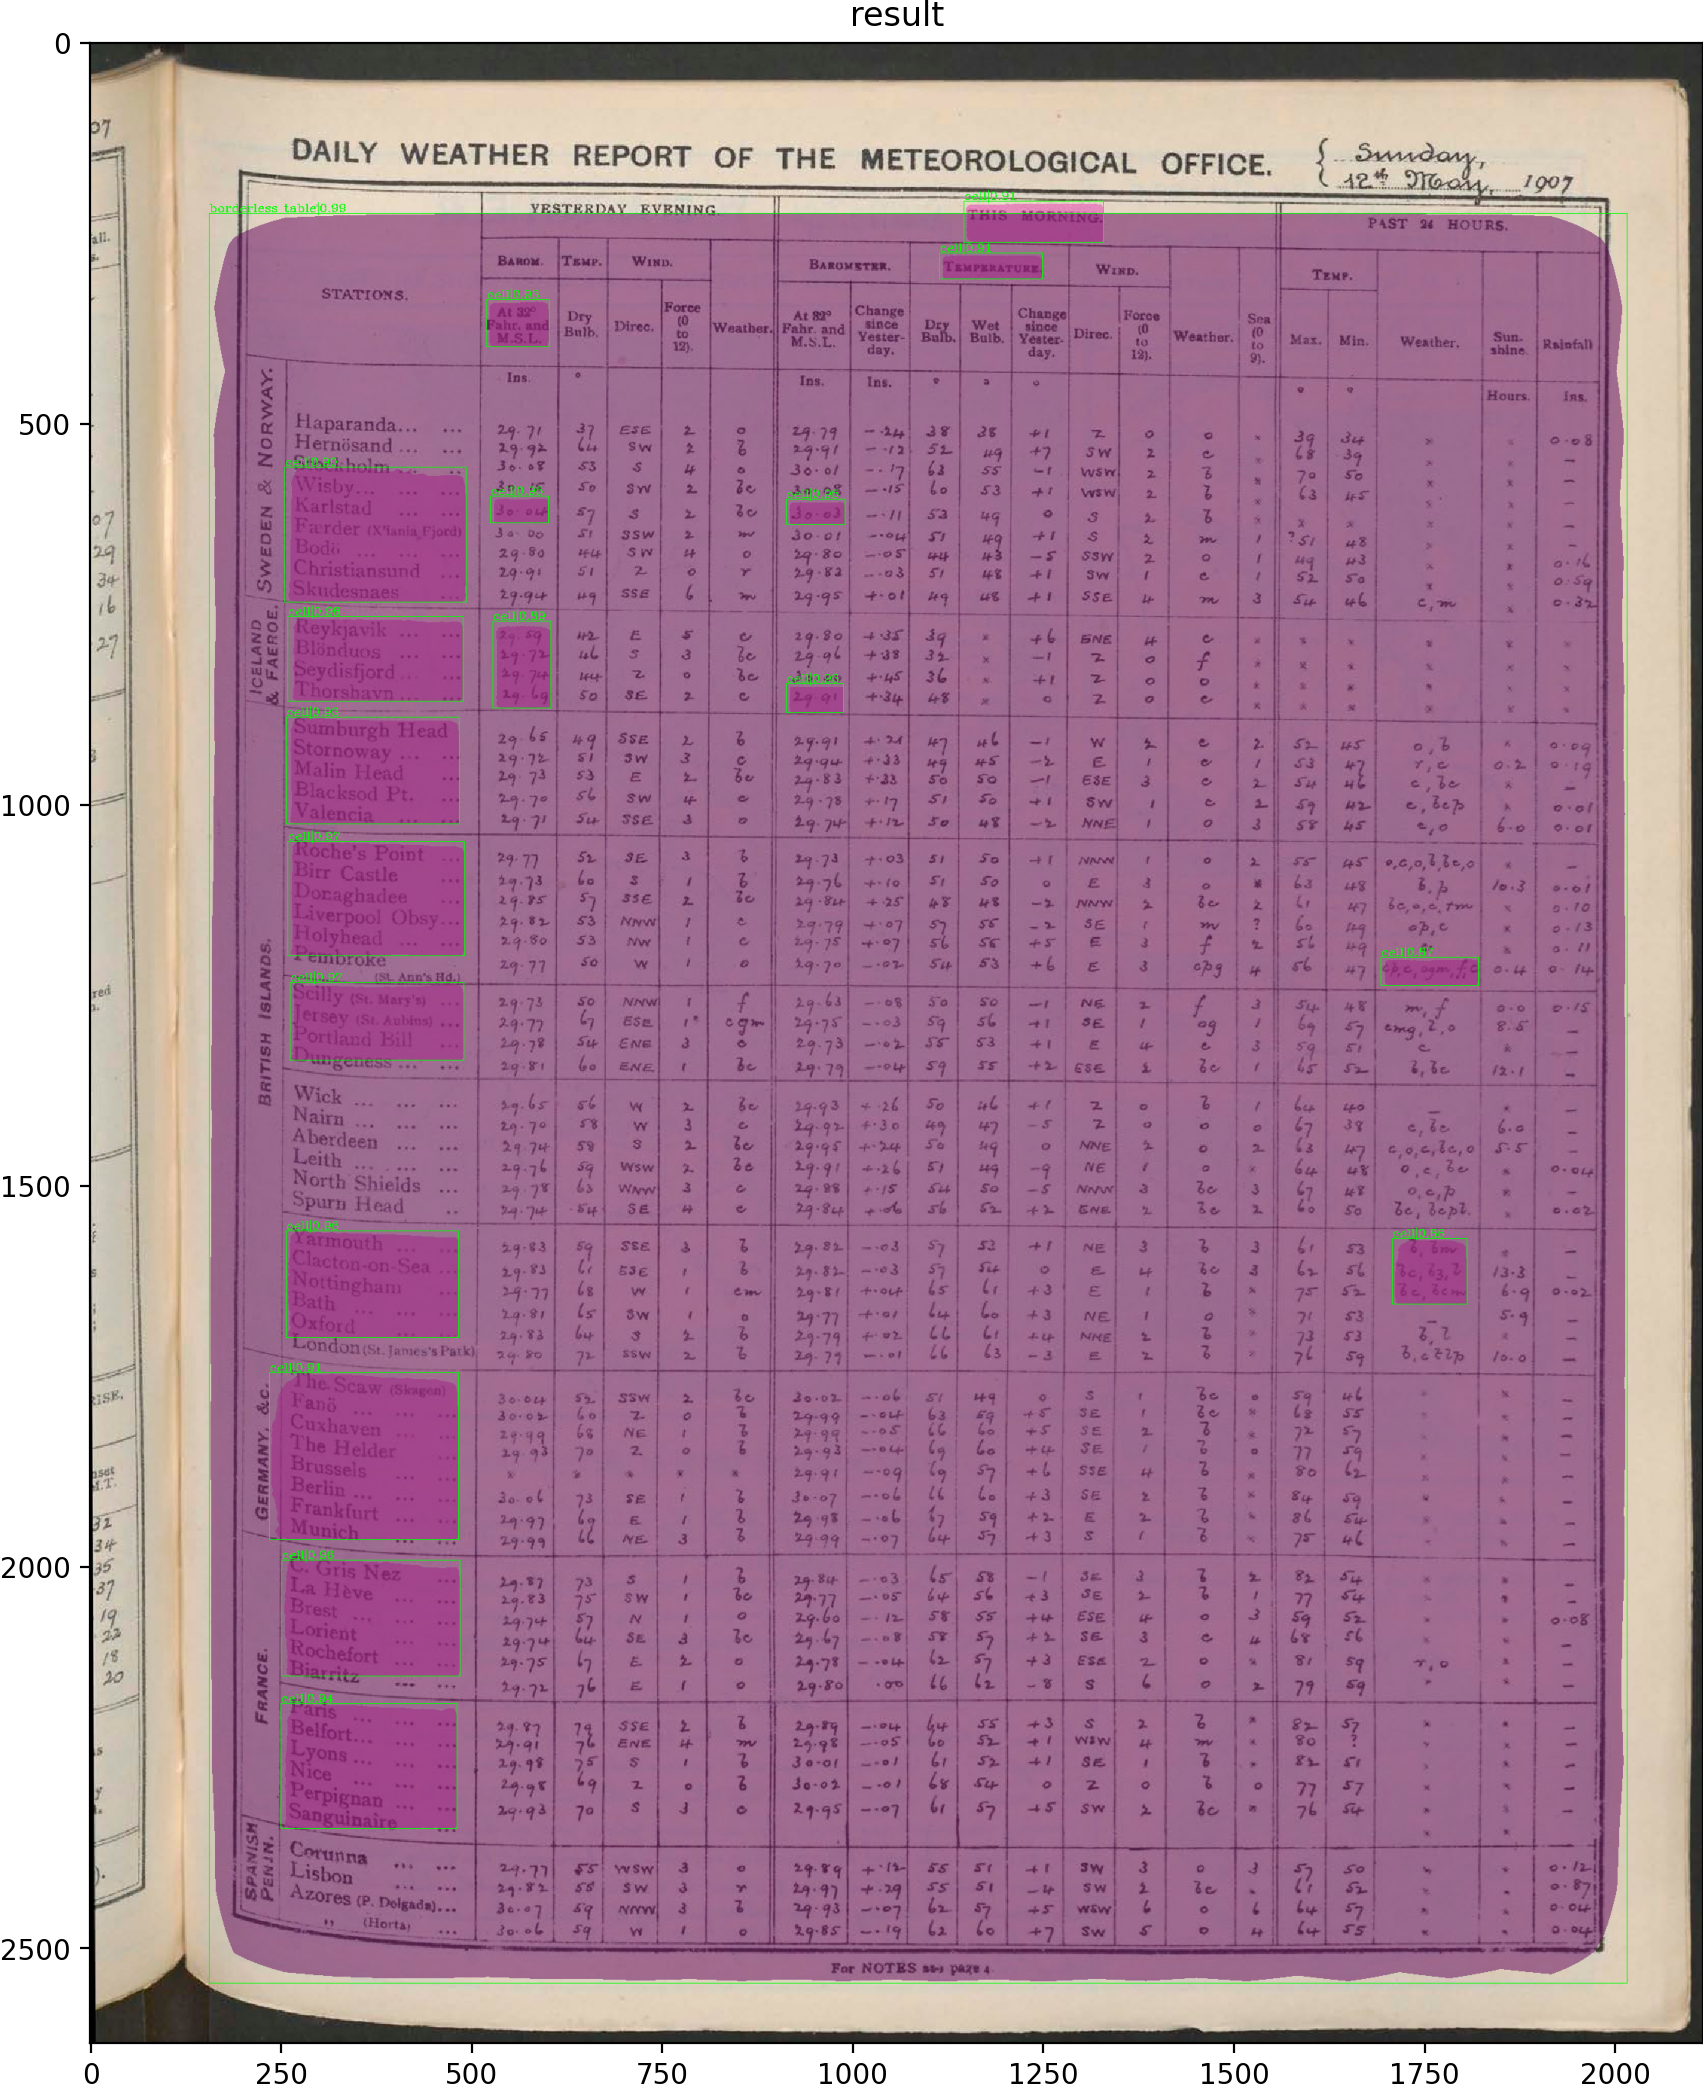 result
DAILY WEATHER REPORT OF THE METEOROLOGICAL OFFICE.
Sunday,
12th May, 1907
borderless table|0.99
YESTERDAY EVENING.
THIS MORNING.
PAST 24 HOURS.
STATIONS.
BAROM. TEMP. WIND. Weather.
BAROMETER. TEMPERATURE. WIND. Weather. Sea (0 to 9).
TEMP. Weather. Sunshine. Rainfall
At 32° Fahr. and M.S.L. Dry Bulb. Direc. Force (0 to 12).
At 32° Fahr. and M.S.L. Change since Yesterday. Dry Bulb. Wet Bulb. Change since Yesterday. Direc. Force (0 to 12).
Max. Min.
Ins. ° Ins. Ins. ° ° ° ° ° Hours. Ins.
SWEDEN & NORWAY.
Haparanda... ... 29.71 37 ESE 2 o 29.79 -.24 38 38 +1 Z 0 o × 39 34 × × 0.08
Hernösand ... ... 29.92 64 SW 2 b 29.91 -.12 52 49 +7 SW 2 c 68 39 × × –
Stockholm ... 30.08 53 S 4 o 30.01 -.17 63 55 -1 WSW 2 b × 70 50 × × –
Wisby... ... ... 50 SW 2 bc -.15 60 53 +1 WSW 2 b 63 45 × × –
Karlstad ... ... 30.04 57 S 2 bc 30.03 -.11 53 49 0 S 2 b × × × × –
Farder (X'iania Fjord) 30.00 51 SSW 2 m 30.01 -.04 51 49 +1 S 2 m 1 ?51 48 × × –
Bodö ... ... ... 29.80 44 SW 4 o 29.80 -.05 44 43 -5 SSW 2 o 1 49 43 × × 0.16
Christiansund ... 29.91 51 Z 0 r 29.82 -.03 51 48 +1 SW 1 c 1 52 50 × × 0.59
Skudesnaes ... 29.94 49 SSE 6 m 29.95 +.01 49 48 +1 SSE 4 m 3 54 46 c,m × 0.32
ICELAND & FAEROE.
Reykjavik ... ... 29.59 42 E 5 c 29.80 +.35 39 × +6 ENE 4 c × × × × × ×
Blönduos ... ... 29.72 46 S 3 bc 29.96 +.38 32 × -1 Z 0 f × × × × × ×
Seydisfjord ... ... 29.74 44 Z 0 bc +.45 36 × +1 Z 0 o × × × × × ×
Thorshavn ... ... 29.69 50 SE 2 c 29.91 +.34 48 × 0 Z 0 c × × × × × ×
BRITISH ISLANDS.
Sumburgh Head 29.65 49 SSE 2 b 29.91 +.21 47 46 -1 W 2 c 2 52 45 o,b × 0.09
Stornoway ... ... 29.72 51 SW 3 c 29.94 +.33 49 45 -2 E 1 c 1 53 47 r,c 0.2 0.19
Malin Head ... 29.73 53 E 2 bc 29.83 +.33 50 50 -1 ESE 3 c 2 54 46 c,bc × –
Blacksod Pt. ... 29.70 56 SW 4 c 29.78 +.17 51 50 +1 SW 1 c 2 59 42 c,bcp × 0.01
Valencia ... ... 29.71 54 SSE 3 o 29.74 +.12 50 48 -2 NNE 1 o 3 58 45 c,o 6.0 0.01
Roche's Point ... 29.77 52 SE 3 b 29.73 +.03 51 50 +1 NNW 1 o 2 55 45 o,c,o,b,bc,o × –
Birr Castle ... 29.73 60 S 1 b 29.76 +.10 51 50 0 E 3 o × 63 48 b,p 10.3 0.01
Donaghadee ... 29.85 57 SSE 2 bc 29.84 +.25 48 48 -2 NNW 2 bc 2 61 47 bc,o,c,rm × 0.10
Liverpool Obsy... 29.82 53 NNW 1 c 29.79 +.07 57 55 -2 SE 1 m ? 60 49 op,c × 0.13
Holyhead ... ... 29.80 53 NW 1 c 29.75 +.07 56 55 +5 E 3 f 2 56 49 × 0.11
Pembroke (St. Ann's Hd.) 29.77 50 W 1 o 29.70 -.02 54 53 +6 E 3 cpg 4 56 47 cp,c,ogm,f,c 0.4 0.14
Scilly (St. Mary's) ... 29.73 50 NNW 1 f 29.63 -.08 50 50 -1 NE 2 f 3 54 48 m,f 0.0 0.15
Jersey (St. Aubins) ... 29.77 67 ESE 1 cgm 29.75 -.03 59 56 +1 SE 1 og 1 69 57 cmg,l,o 8.5 –
Portland Bill ... 29.78 54 ENE 3 c 29.73 -.02 55 53 +1 E 4 c 3 59 51 c × –
Dungeness ... ... 29.81 60 ENE 1 bc 29.79 -.04 59 55 +2 ESE 2 bc 1 65 52 b,bc 12.1 –
Wick ... ... ... 29.65 56 W 2 bc 29.93 +.26 50 46 +1 Z 0 b 1 64 40 – × –
Nairn ... ... ... 29.70 58 W 3 c 29.92 +.30 49 47 -5 Z 0 o 0 67 38 c,bc 6.0 –
Aberdeen ... ... 29.74 58 S 2 bc 29.95 +.24 50 49 0 NNE 2 o 2 63 47 c,o,c,bc,o 5.5 –
Leith ... ... ... 29.76 59 WSW 2 bc 29.91 +.26 51 49 -9 NE 1 o × 64 48 o,c,bc × 0.04
North Shields ... 29.78 63 WNW 3 c 29.88 +.15 54 50 -5 NNW 3 bc 3 67 48 o,c,p × –
Spurn Head .. 29.74 54 SE 4 c 29.84 +.06 56 52 +2 ENE 2 bc 2 60 50 bc, bcpl. × 0.02
Yarmouth ... ... 29.83 59 SSE 3 b 29.82 -.03 57 53 +1 NE 3 b 3 61 53 b, bm × –
Clacton-on-Sea ... 29.83 61 ESE 1 b 29.82 -.03 57 54 0 E 4 bc 3 62 56 13.3 –
Nottingham ... 29.77 68 W 1 cm 29.81 +.04 65 61 +3 E 1 b × 75 52 bc, bcm 6.9 0.02
Bath ... ... ... 29.81 65 SW 1 o 29.77 +.01 64 60 +3 NE 1 o × 71 53 – 5.9 –
Oxford ... ... 29.83 64 S 2 b 29.79 +.02 66 61 +4 NNE 2 b × 73 53 –
London (St. James's Park) 29.80 72 SSW 2 b 29.79 -.01 66 63 -3 E 2 b × 76 59 10.0 –
GERMANY, &c.
The Scaw (Skagen) 30.04 52 SSW 2 bc 30.02 -.06 51 49 0 S 1 bc 0 59 46 × × –
Fanö ... ... ... 30.02 60 Z 0 b 29.99 -.04 63 59 +5 SE 1 bc × 68 55 × × –
Cuxhaven ... ... 29.99 68 NE 1 b 29.99 -.05 66 60 +5 SE 2 b × 72 57 × × –
The Helder ... 29.93 70 Z 0 b 29.93 -.04 69 60 +4 SE 1 b 0 77 59 × × –
Brussels ... ... × × × × × 29.91 -.09 69 57 +6 SSE 4 b × 80 62 × × –
Berlin ... ... ... 30.06 73 SE 1 b 30.07 -.06 66 60 +3 SE 2 b × 84 59 × × –
Frankfurt ... ... 29.97 69 E 1 b 29.98 -.06 67 59 +2 E 2 b × 86 54 × × –
Munich ... ... 29.99 66 NE 3 b 29.99 -.07 64 57 +3 S 1 b × 75 46 × × –
FRANCE.
C. Gris Nez ... 29.87 73 S 1 b 29.84 -.03 65 58 -1 SE 3 b 2 82 54 × × –
La Hève ... ... 29.83 75 SW 1 bc 29.77 -.05 64 56 +3 SE 2 b 1 77 54 × × –
Brest ... ... ... 29.74 57 N 1 o 29.60 -.12 58 55 +4 ESE 4 o 3 59 52 × × 0.08
Lorient ... ... 29.74 64 SE 3 bc 29.67 -.08 58 57 +2 SE 3 c 4 68 56 × × –
Rochefort ... ... 29.75 67 E 2 o 29.78 -.04 62 57 +3 ESE 2 o × 81 59 r,o × –
Biarritz ... ... 29.72 76 E 1 o 29.80 .00 66 62 -8 S 6 o 2 79 59 × × –
Paris ... ... ... 29.87 79 SSE 2 b 29.89 -.04 64 55 +3 S 2 b × 82 57 × × –
Belfort... ... ... 29.91 76 ENE 4 m 29.98 -.05 60 52 +1 WSW 4 m × 80 ? × × –
Lyons ... ... ... 29.98 75 S 1 b 30.01 -.01 61 52 +1 SE 1 b × 82 51 × × –
Nice ... ... ... 29.98 69 Z 0 b 30.02 -.01 68 54 0 Z 0 b 0 77 57 × × –
Perpignan ... ... 29.93 70 S 3 c 29.95 -.07 61 57 +5 SW 2 bc × 76 54 × × –
Sanguinaire ... × ×
SPANISH PENIN.
Corunna ... ... 29.77 55 WSW 3 o 29.89 +.12 55 51 +1 SW 3 o 3 57 50 × × 0.12
Lisbon ... ... 29.82 58 SW 3 r 29.97 +.29 55 51 -4 SW 2 bc × 61 52 × × 0.87
Azores (P. Delgada)... 30.07 59 NNW 3 b 29.93 -.07 62 57 +5 WSW 6 o 6 64 57 × × 0.04
" (Horta) ... 30.06 59 W 1 o 29.85 -.19 62 60 +7 SW 5 o 4 64 55 × × 0.04
For NOTES see page 4.
0
500
1000
1500
2000
2500
0 250 500 750 1000 1250 1500 1750 2000